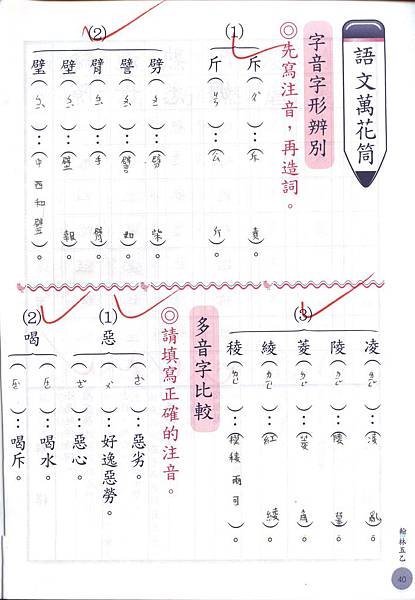 語文萬花筒
字音字形辨別
◎先寫注音，再造詞。
(1)
斥（ㄔˋ）：（斥責）。
斤（ㄐㄧㄣ）：（公斤）。
(2)
劈（）：（劈柴）。
譬（）：（譬如）。
臂（）：（手臂）。
壁（）：（壁報）。
璧（）：（中西和璧）。
(3)
凌（ㄌㄧㄥˊ）：（凌亂）。
陵（ㄌㄧㄥˊ）：（陵墓）。
菱（ㄌㄧㄥˊ）：（菱角）。
綾（ㄌㄧㄥˊ）：（紅綾）。
稜（ㄌㄧㄥˊ）：（稜兩可）。
多音字比較
◎請填寫正確的注音。
(1)
惡
（）：惡劣。
（ㄨˋ）：好逸惡勞。
（）：惡心。
(2)
喝
（）：喝水。
（）：喝斥。
翰林五乙
40